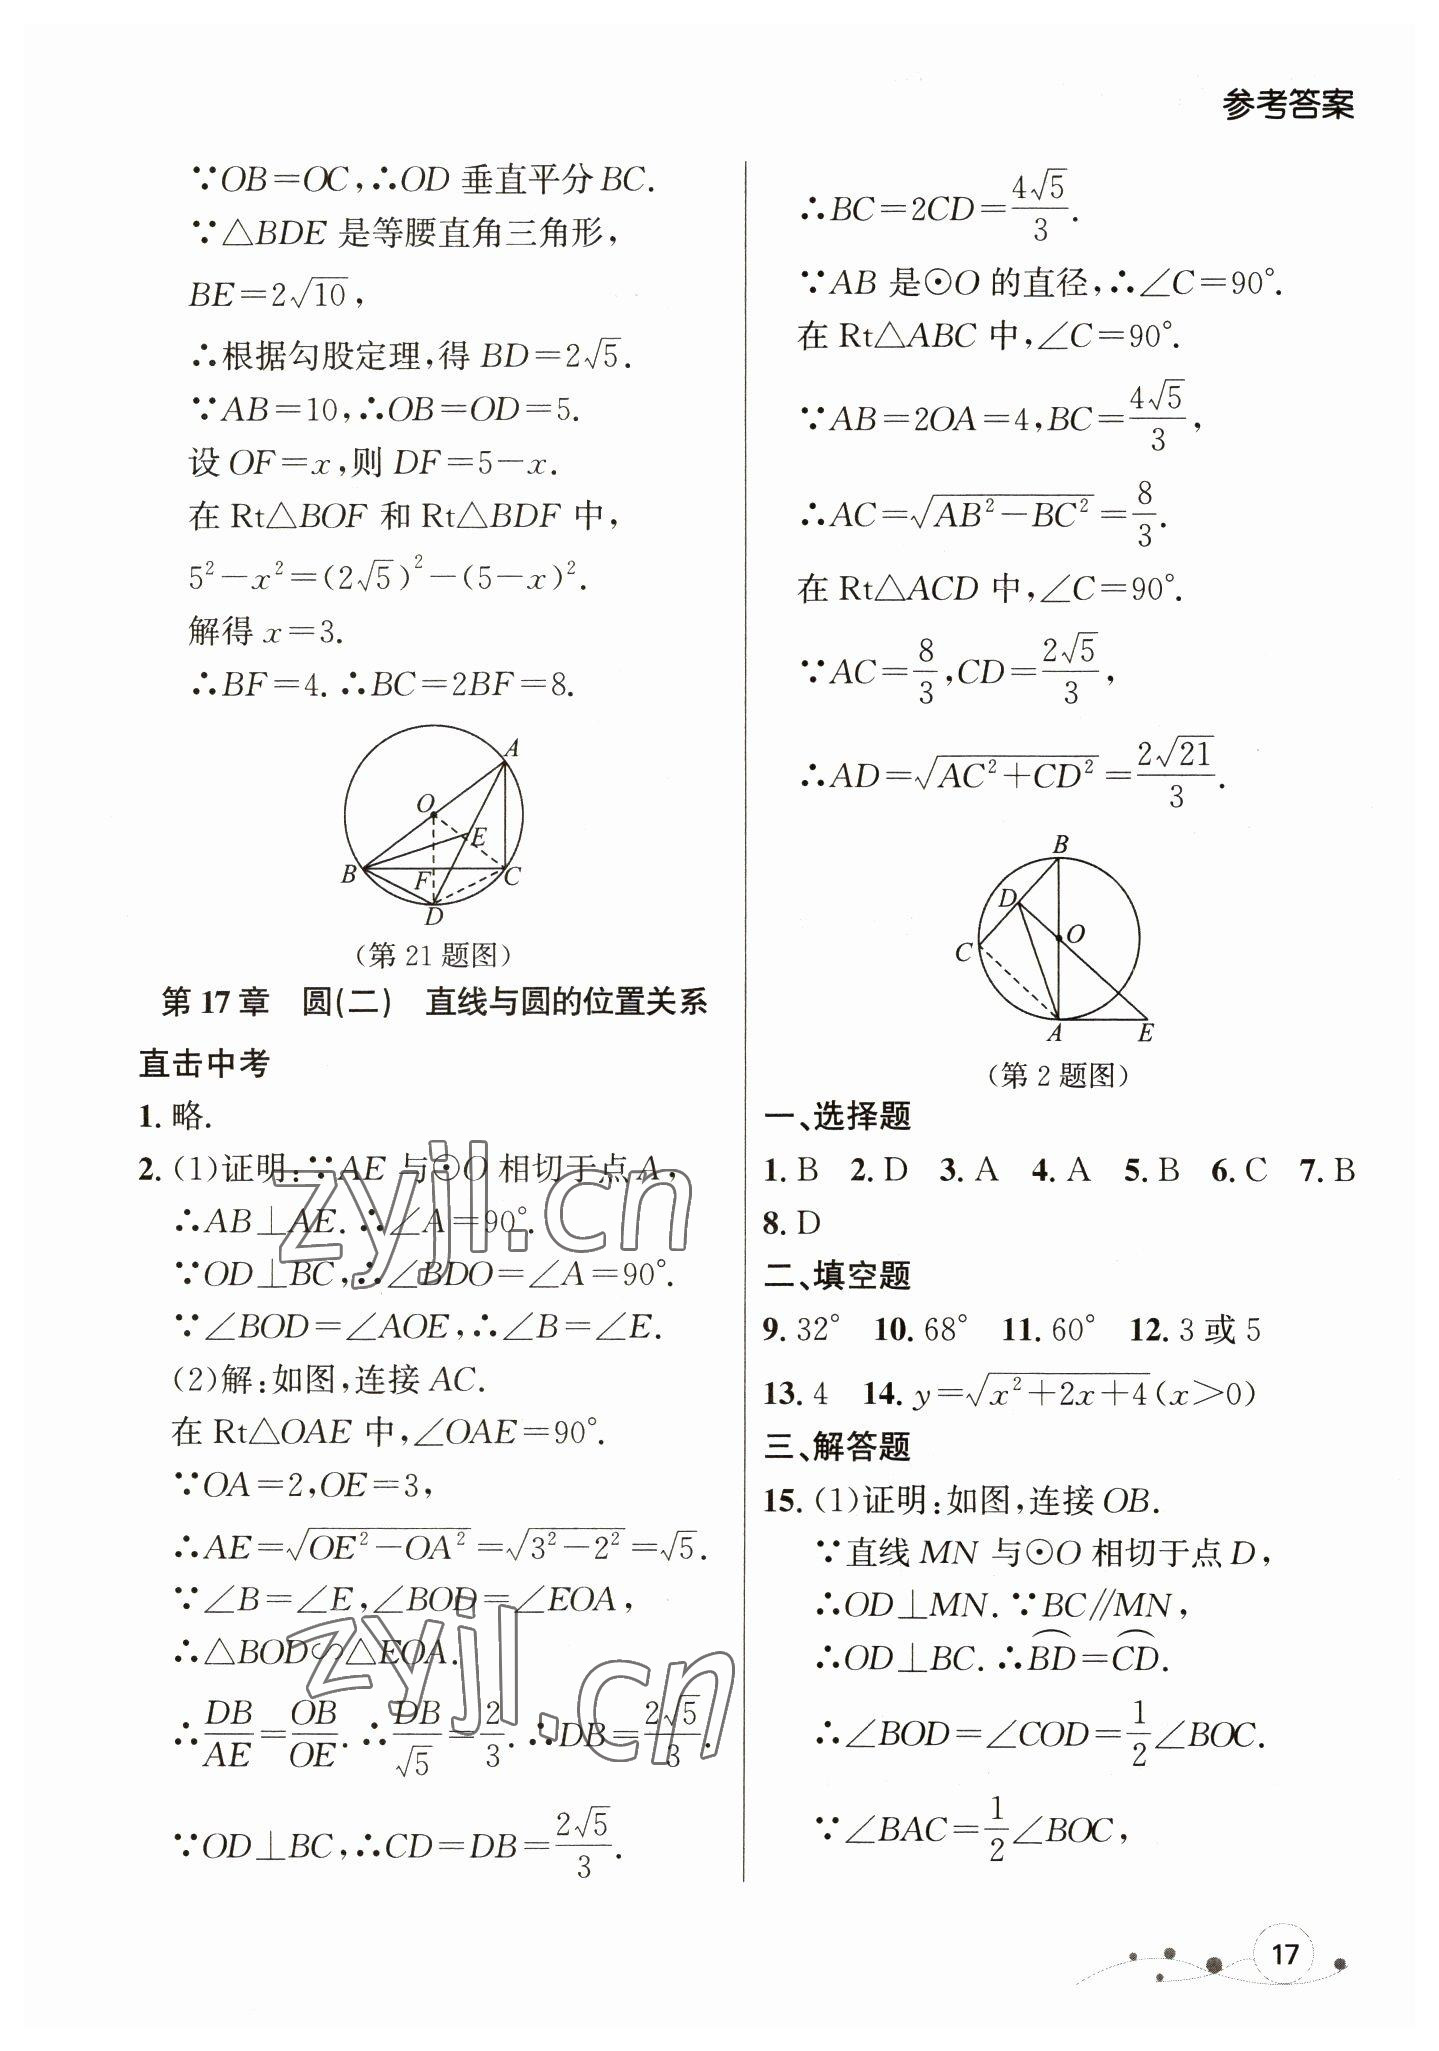 参考答案
∵OB=OC,∴OD 垂直平分 BC.
∵△BDE 是等腰直角三角形,
BE=2√10,
∴根据勾股定理,得 BD=2√5.
∵AB=10,∴OB=OD=5.
设 OF=x,则 DF=5-x.
在 Rt△BOF 和 Rt△BDF 中,
5²-x²=(2√5)²-(5-x)².
解得 x=3.
∴BF=4. ∴BC=2BF=8.
A
O
E
B
F
C
D
(第 21 题图)
第 17 章 圆(二) 直线与圆的位置关系
直击中考
1. 略.
2. (1)证明:∵AE 与⊙O 相切于点 A,
∴AB⊥AE. ∴∠A=90°.
∵OD⊥BC,∴∠BDO=∠A=90°.
∵∠BOD=∠AOE,∴∠B=∠E.
(2)解:如图,连接 AC.
在 Rt△OAE 中,∠OAE=90°.
∵OA=2,OE=3,
∴AE=√(OE²-OA²)=√(3²-2²)=√5.
∵∠B=∠E,∠BOD=∠EOA,
∴△BOD∽△EOA.
∴DB/AE=OB/OE. ∴DB/√5=2/3. ∴DB=2√5/3.
∵OD⊥BC,∴CD=DB=2√5/3.
∴BC=2CD=4√5/3.
∵AB 是⊙O 的直径,∴∠C=90°.
在 Rt△ABC 中,∠C=90°.
∵AB=2OA=4,BC=4√5/3,
∴AC=√(AB²-BC²)=8/3.
在 Rt△ACD 中,∠C=90°.
∵AC=8/3,CD=2√5/3,
∴AD=√(AC²+CD²)=2√21/3.
B
D
C
O
A
E
(第 2 题图)
一、选择题
1. B 2. D 3. A 4. A 5. B 6. C 7. B
8. D
二、填空题
9. 32° 10. 68° 11. 60° 12. 3 或 5
13. 4 14. y=√(x²+2x+4)(x>0)
三、解答题
15. (1)证明:如图,连接 OB.
∵直线 MN 与⊙O 相切于点 D,
∴OD⊥MN. ∵BC∥MN,
∴OD⊥BC. ∴⌒BD=⌒CD.
∴∠BOD=∠COD=1/2∠BOC.
∵∠BAC=1/2∠BOC,
zyjl.cn
zyjl.cn
17